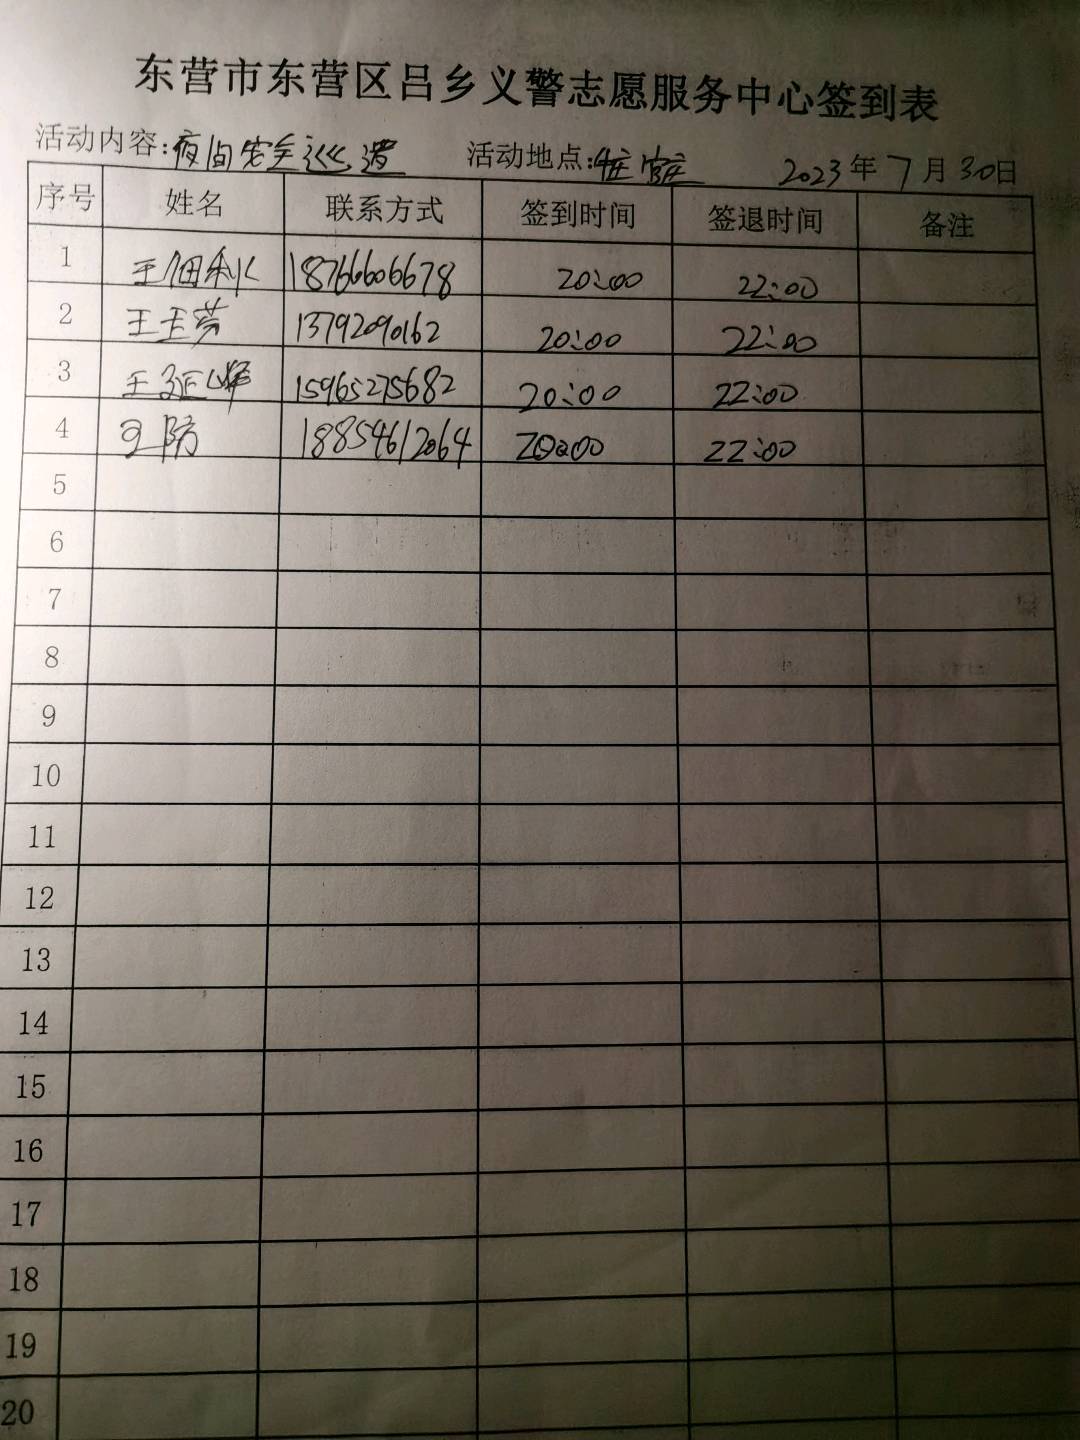 东营市东营区吕乡义警志愿服务中心签到表
活动内容:夜间安全巡逻 活动地点: 2023年7月30日
序号 姓名 联系方式 签到时间 签退时间 备注
1 王佃 18766606678 20:00 22:00
2 王玉芳 13792090162 20:00 22:00
3 王延峰 15965275682 20:00 22:00
4 防 18854612064 20:00 22:00
5
6
7
8
9
10
11
12
13
14
15
16
17
18
19
20